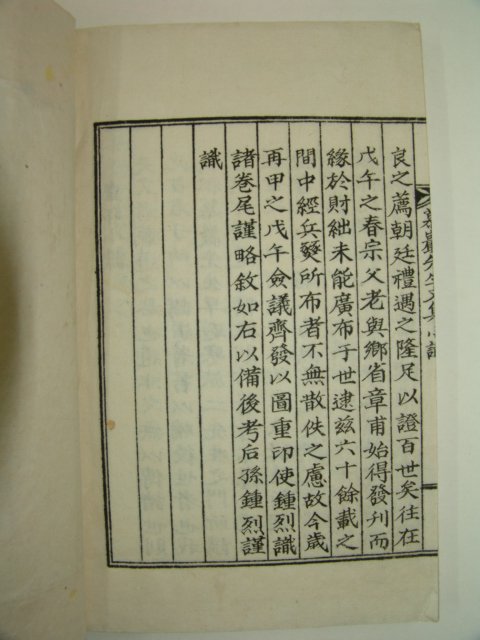 良之薦朝廷禮遇之隆足以證百世矣往在
戊午之春宗父老與鄉省章甫始得發刊而
緣於財絀未能廣布于世逮玆六十餘載之
間中經兵燹所布者不無散佚之慮故今歲
再甲之戊午僉議齊發以圖重印使鍾烈識
諸卷尾謹略敘如右以備後考后孫鍾烈謹
識